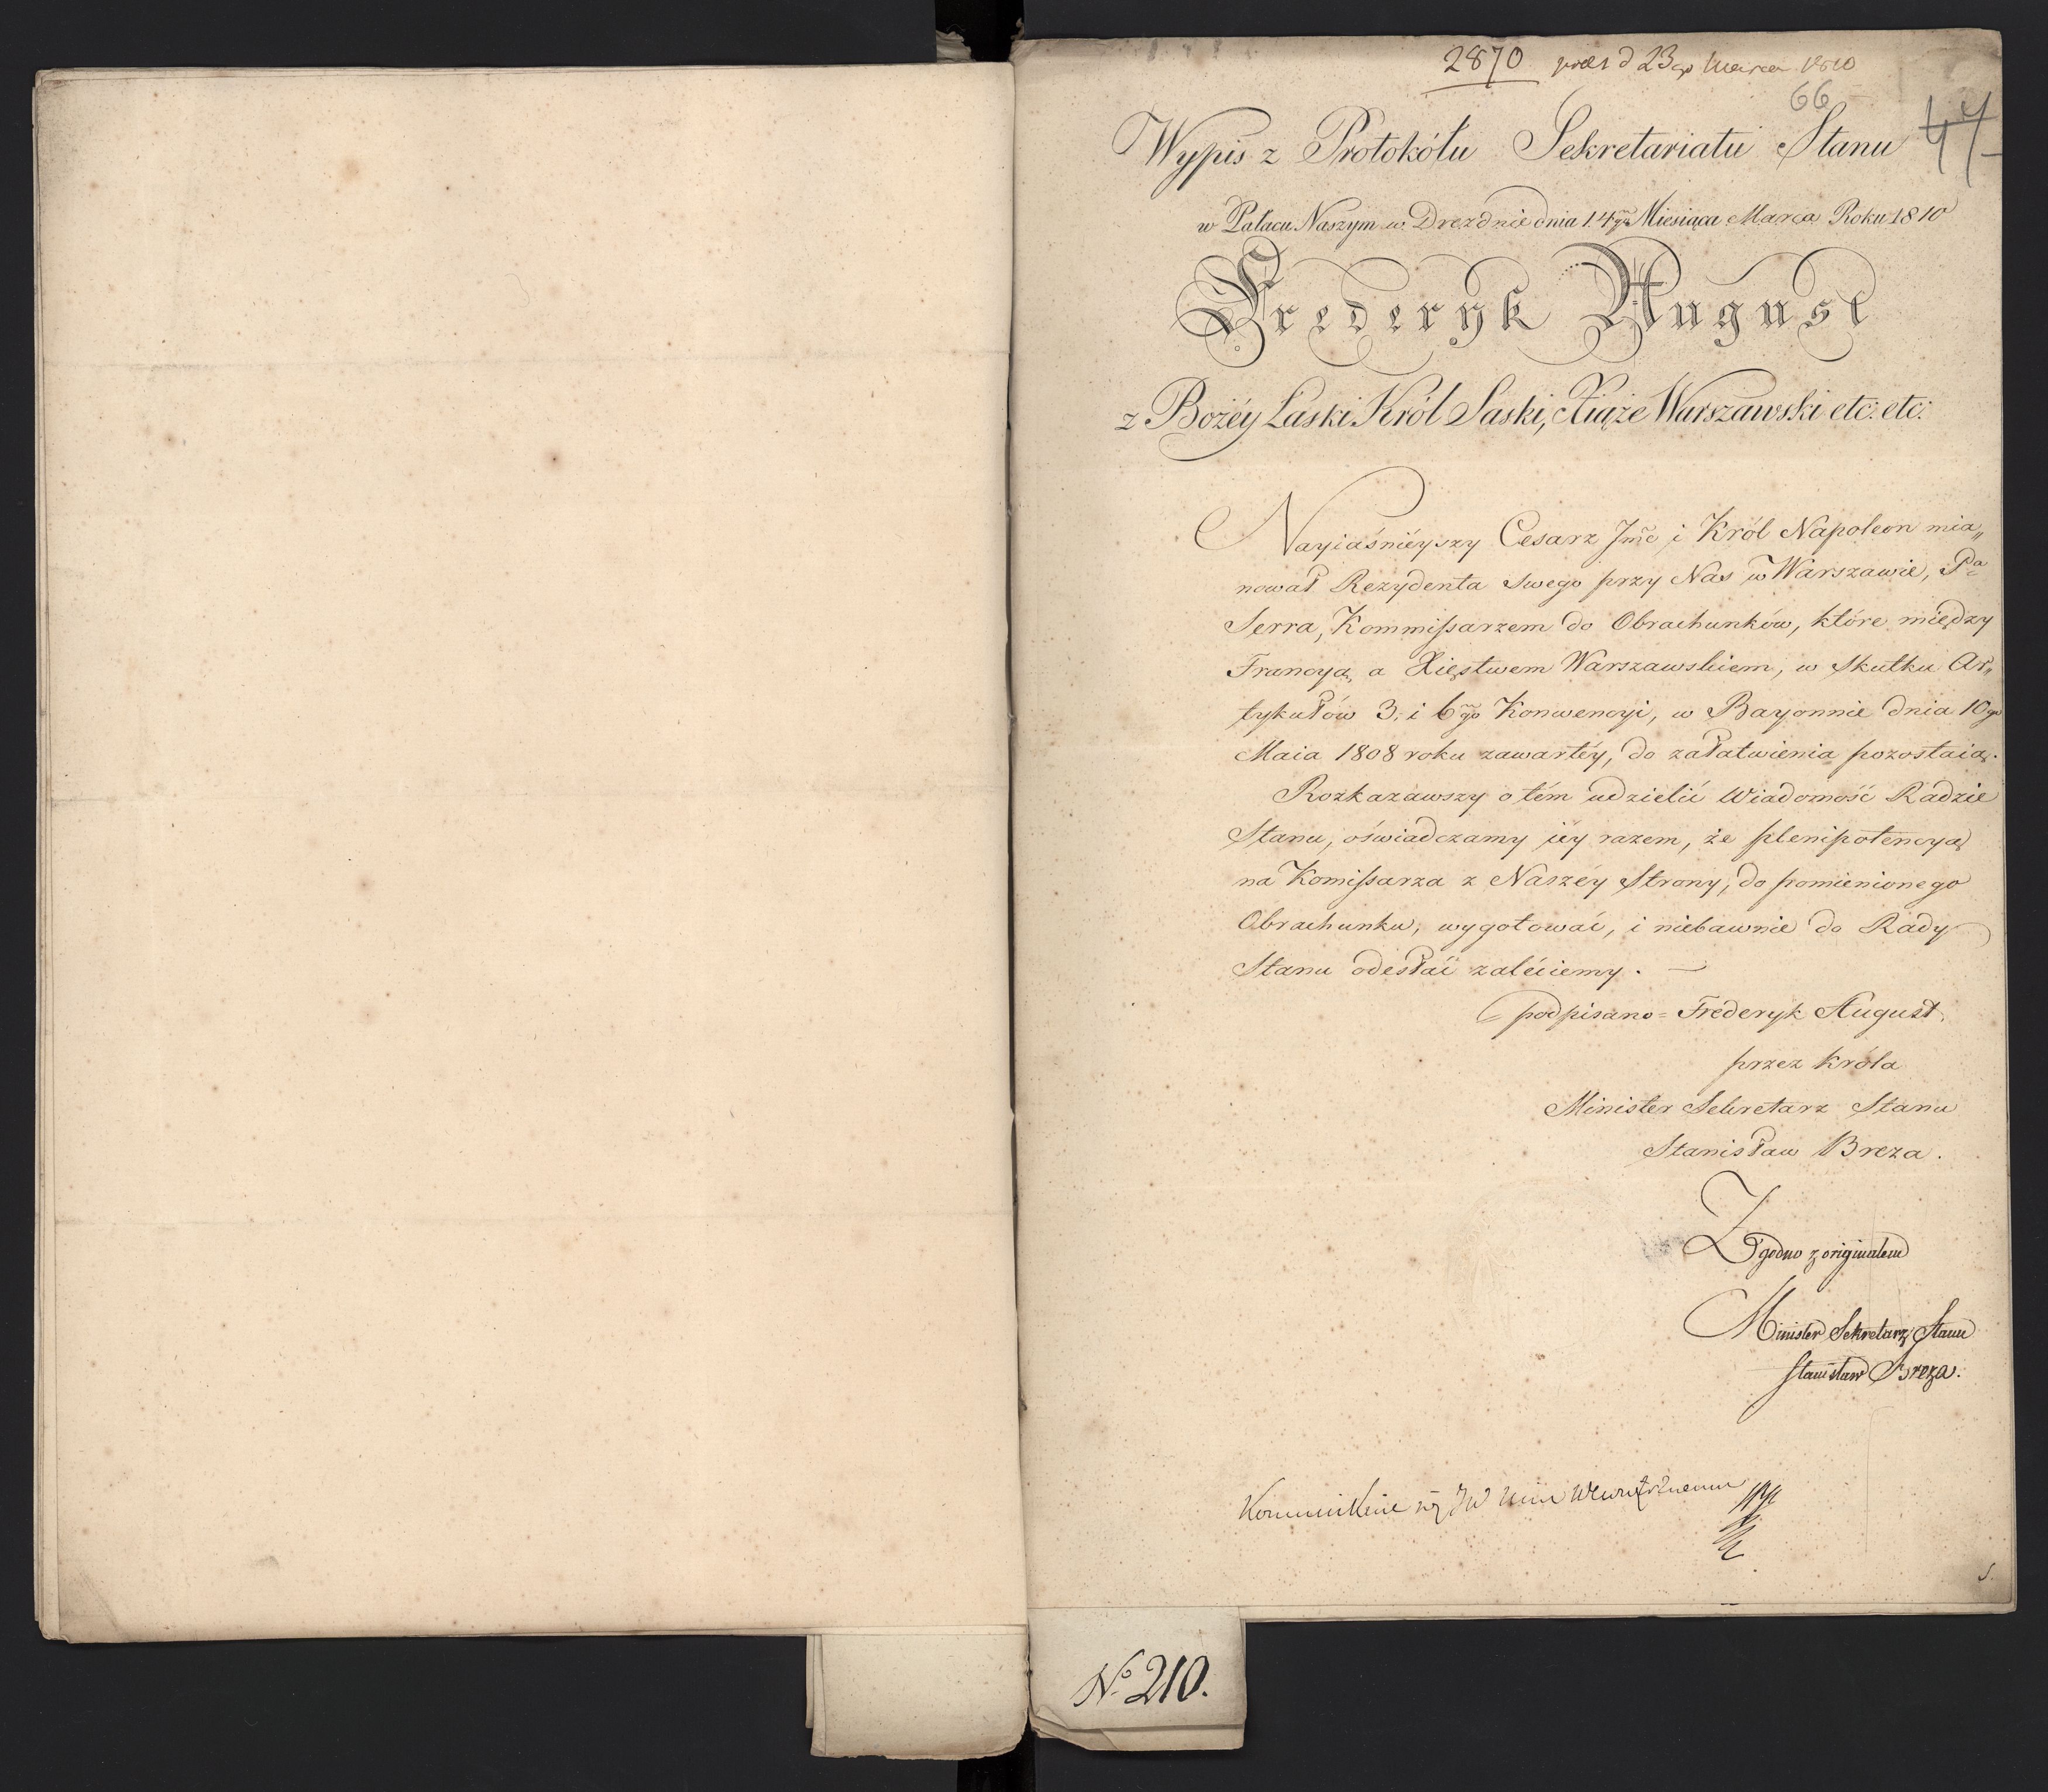 2870 praes d 23go Marca 1810
66
47
Wypis z Protokółu Sekretariatu Stanu
w Pałacu Naszym w Dreznie dnia 14go Miesiąca Marca Roku 1810
Frederyk August
z Bożéy Łaski Król Saski, Xiąże Warszawski etc: etc:
Nayiaśniéyszy Cesarz Jmć i Król Napoleon mia„
nował Rezydenta swego przy Nas w Warszawie, Pa
Serra, Kommissarzem do Obrachunków, które między
Francyą, a Xięstwem Warszawskiem, w skutku Ar„
tykułów 3. i 6go Konwencyi, w Bayonnie dnia 10go
Maia 1808 roku zawartéy, do załatwienia pozostaią.
Rozkazawszy o tém udzielić wiadomość Radzie
Stanu, oświadczamy iéy razem, że plenipotencyą
na Komissarza z Naszéy Strony, do pomienionego
Obrachunku, wygotować, i niebawnie do Rady
Stanu odesłać zaleciemy. —
podpisano = Fréderyk August.
przez Króla
Minister Sekretarz Stanu
Stanisław Breza.
Zgodno z originałem
Minister Sekretarz Stanu
Stanisław Breza.
JW Wewnętrznemu
No 210.